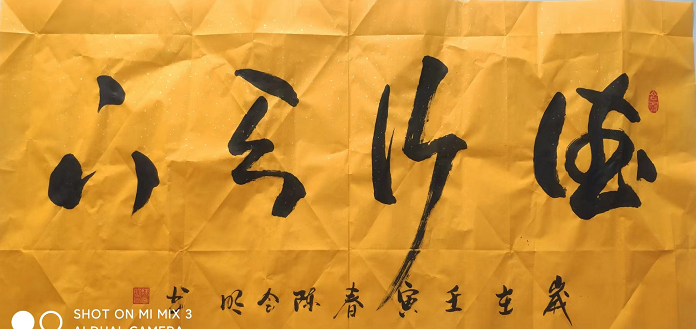 德行天下
歲在壬寅春陈明书
SHOT ON MI MIX 3
AI DUAL CAMERA